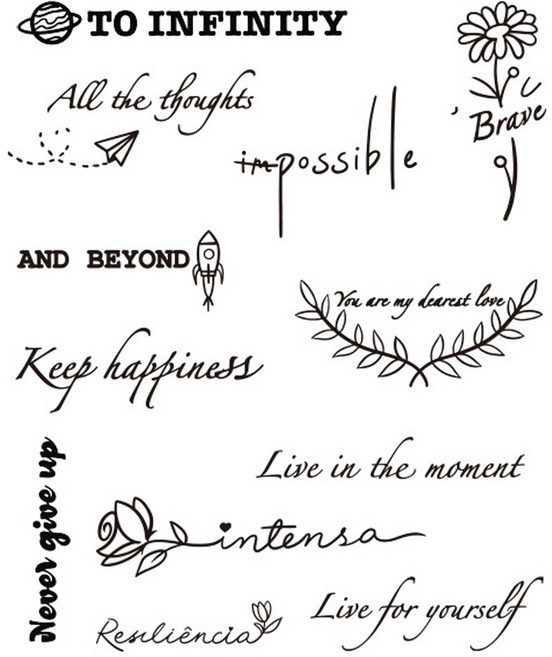 TO INFINITY
All the thoughts
Brave
impossible
AND BEYOND
You are my dearest love
Keep happiness
Never give up
Live in the moment
intensa
Live for yourself
Resiliência